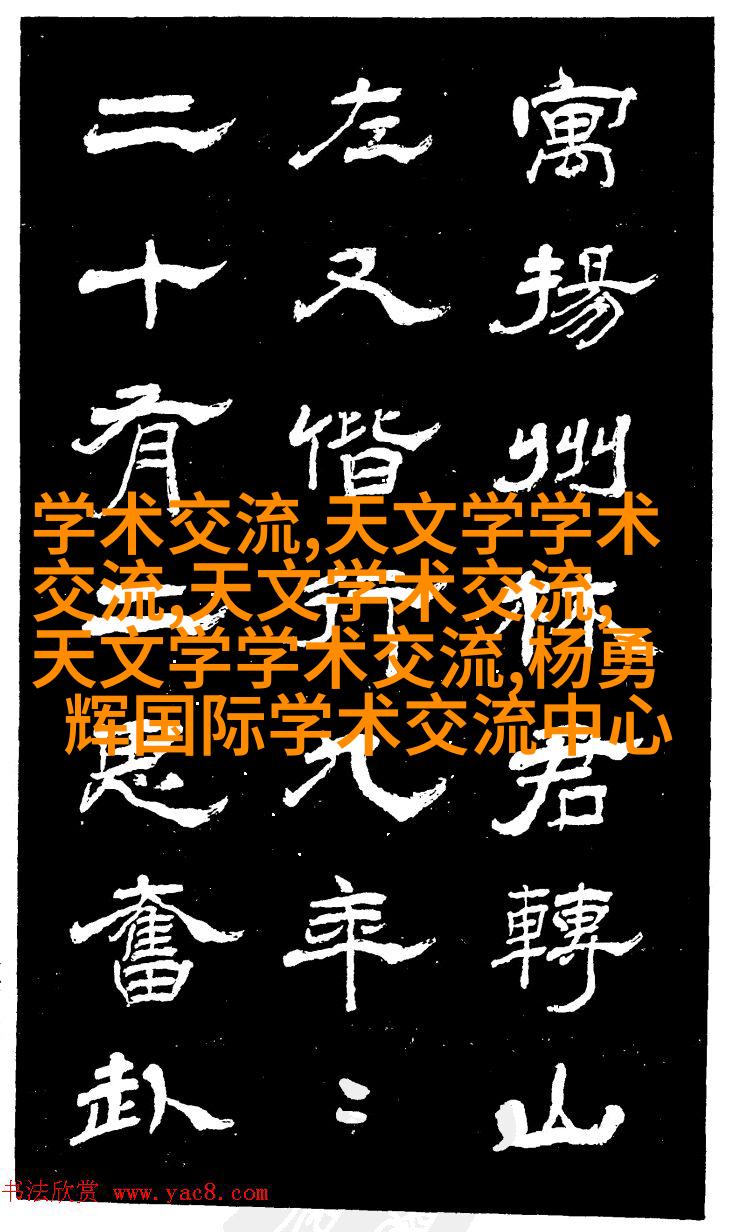 寓揚州君轉山
左又偕九年〻
二十有思奮赴
学术交流,天文学学术
交流,天文学术交流,
天文学学术交流,杨勇
辉国际学术交流中心
书法欣赏 www.yac8.com